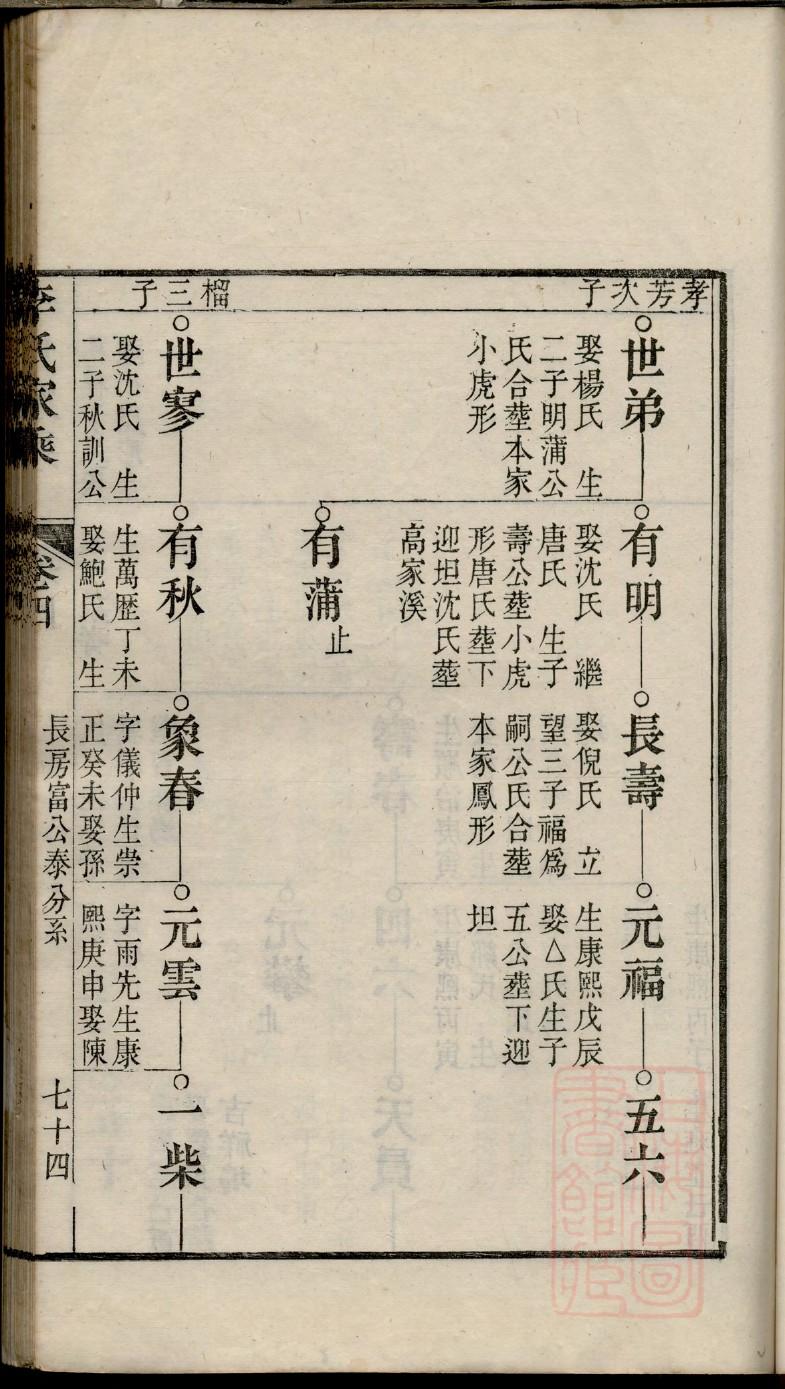 孝芳次子
世弟
娶楊氏 生
二子明蒲公
氏合塟本家
小虎形
有明
娶沈氏 繼
唐氏 生子
壽公塟小虎
形唐氏塟下
迎坦沈氏塟
高家溪
長壽
娶倪氏 立
望三子福爲
嗣公氏合塟
本家鳳形
元福
生康熙戊辰
娶△氏生子
五公塟下迎
坦
五六
有蒲
止
榴三子
世寥
娶沈氏 生
二子秋訓公
有秋
生萬歷丁未
娶鮑氏 生
象春
字儀仲生崇
正癸未娶孫
元雲
字雨先生康
熙庚申娶陳
一柴
李氏家乘
卷四
長房富公泰分系
七十四